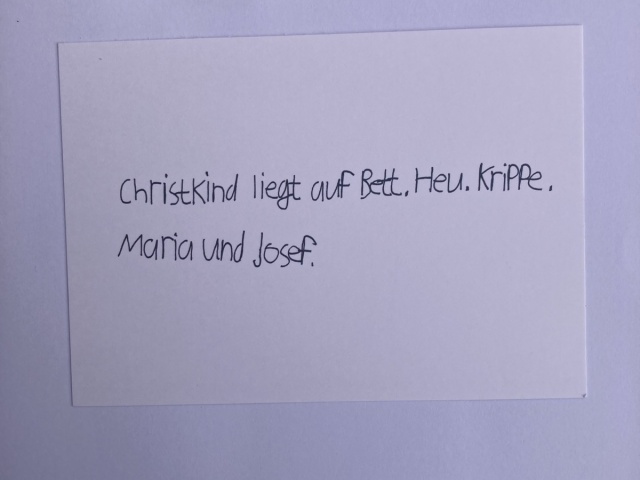 Christkind liegt auf Bett. Heu. Krippe.
Maria und Josef.